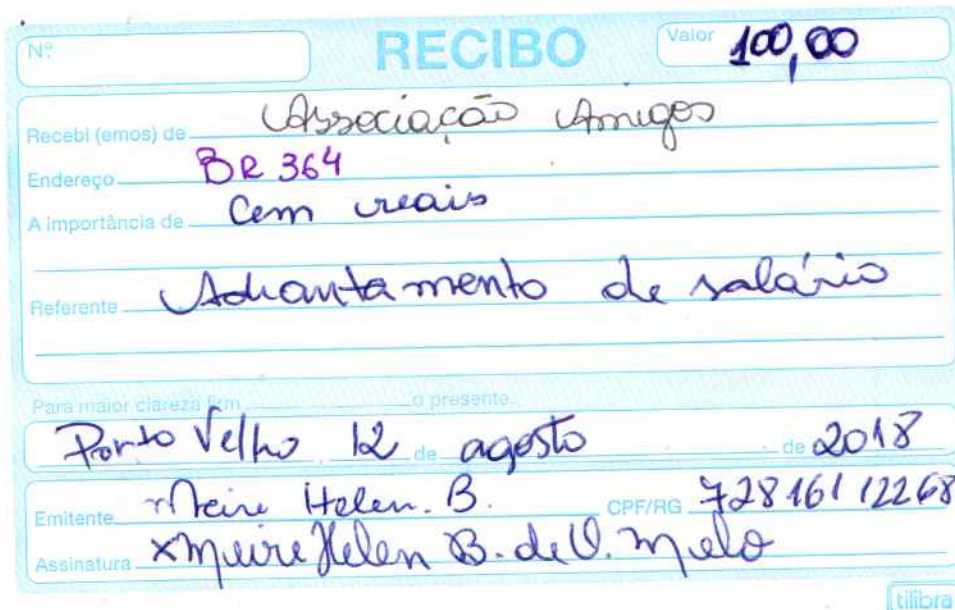 Nº RECIBO Valor 100,00
Recebi (emos) de Associação Amigos
Endereço BR 364
A importância de Cem reais
Referente Adiantamento de salário
Para maior clareza firm o presente.
Porto Velho, 12 de agosto de 2018
Emitente Meire Helen. B. CPF/RG 728 161 12268
Assinatura x Meire Helen B. de O. Melo
tilibra